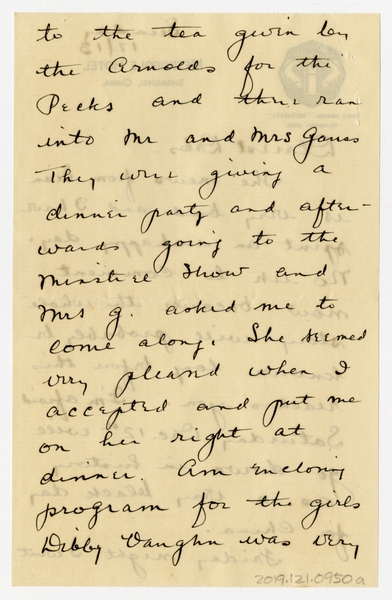 to the tea given by
the Arnolds for the
Pecks and there ran
into Mr and Mrs Gauss
They were giving a
dinner party and after-
wards going to the
Minstrel Show and
Mrs G. asked me to
come along. She seemed
very pleased when I
accepted and put me
on her right at
dinner. Am enclosing
program for the girls
Dibby Vaughn was very
2019.121.0950a